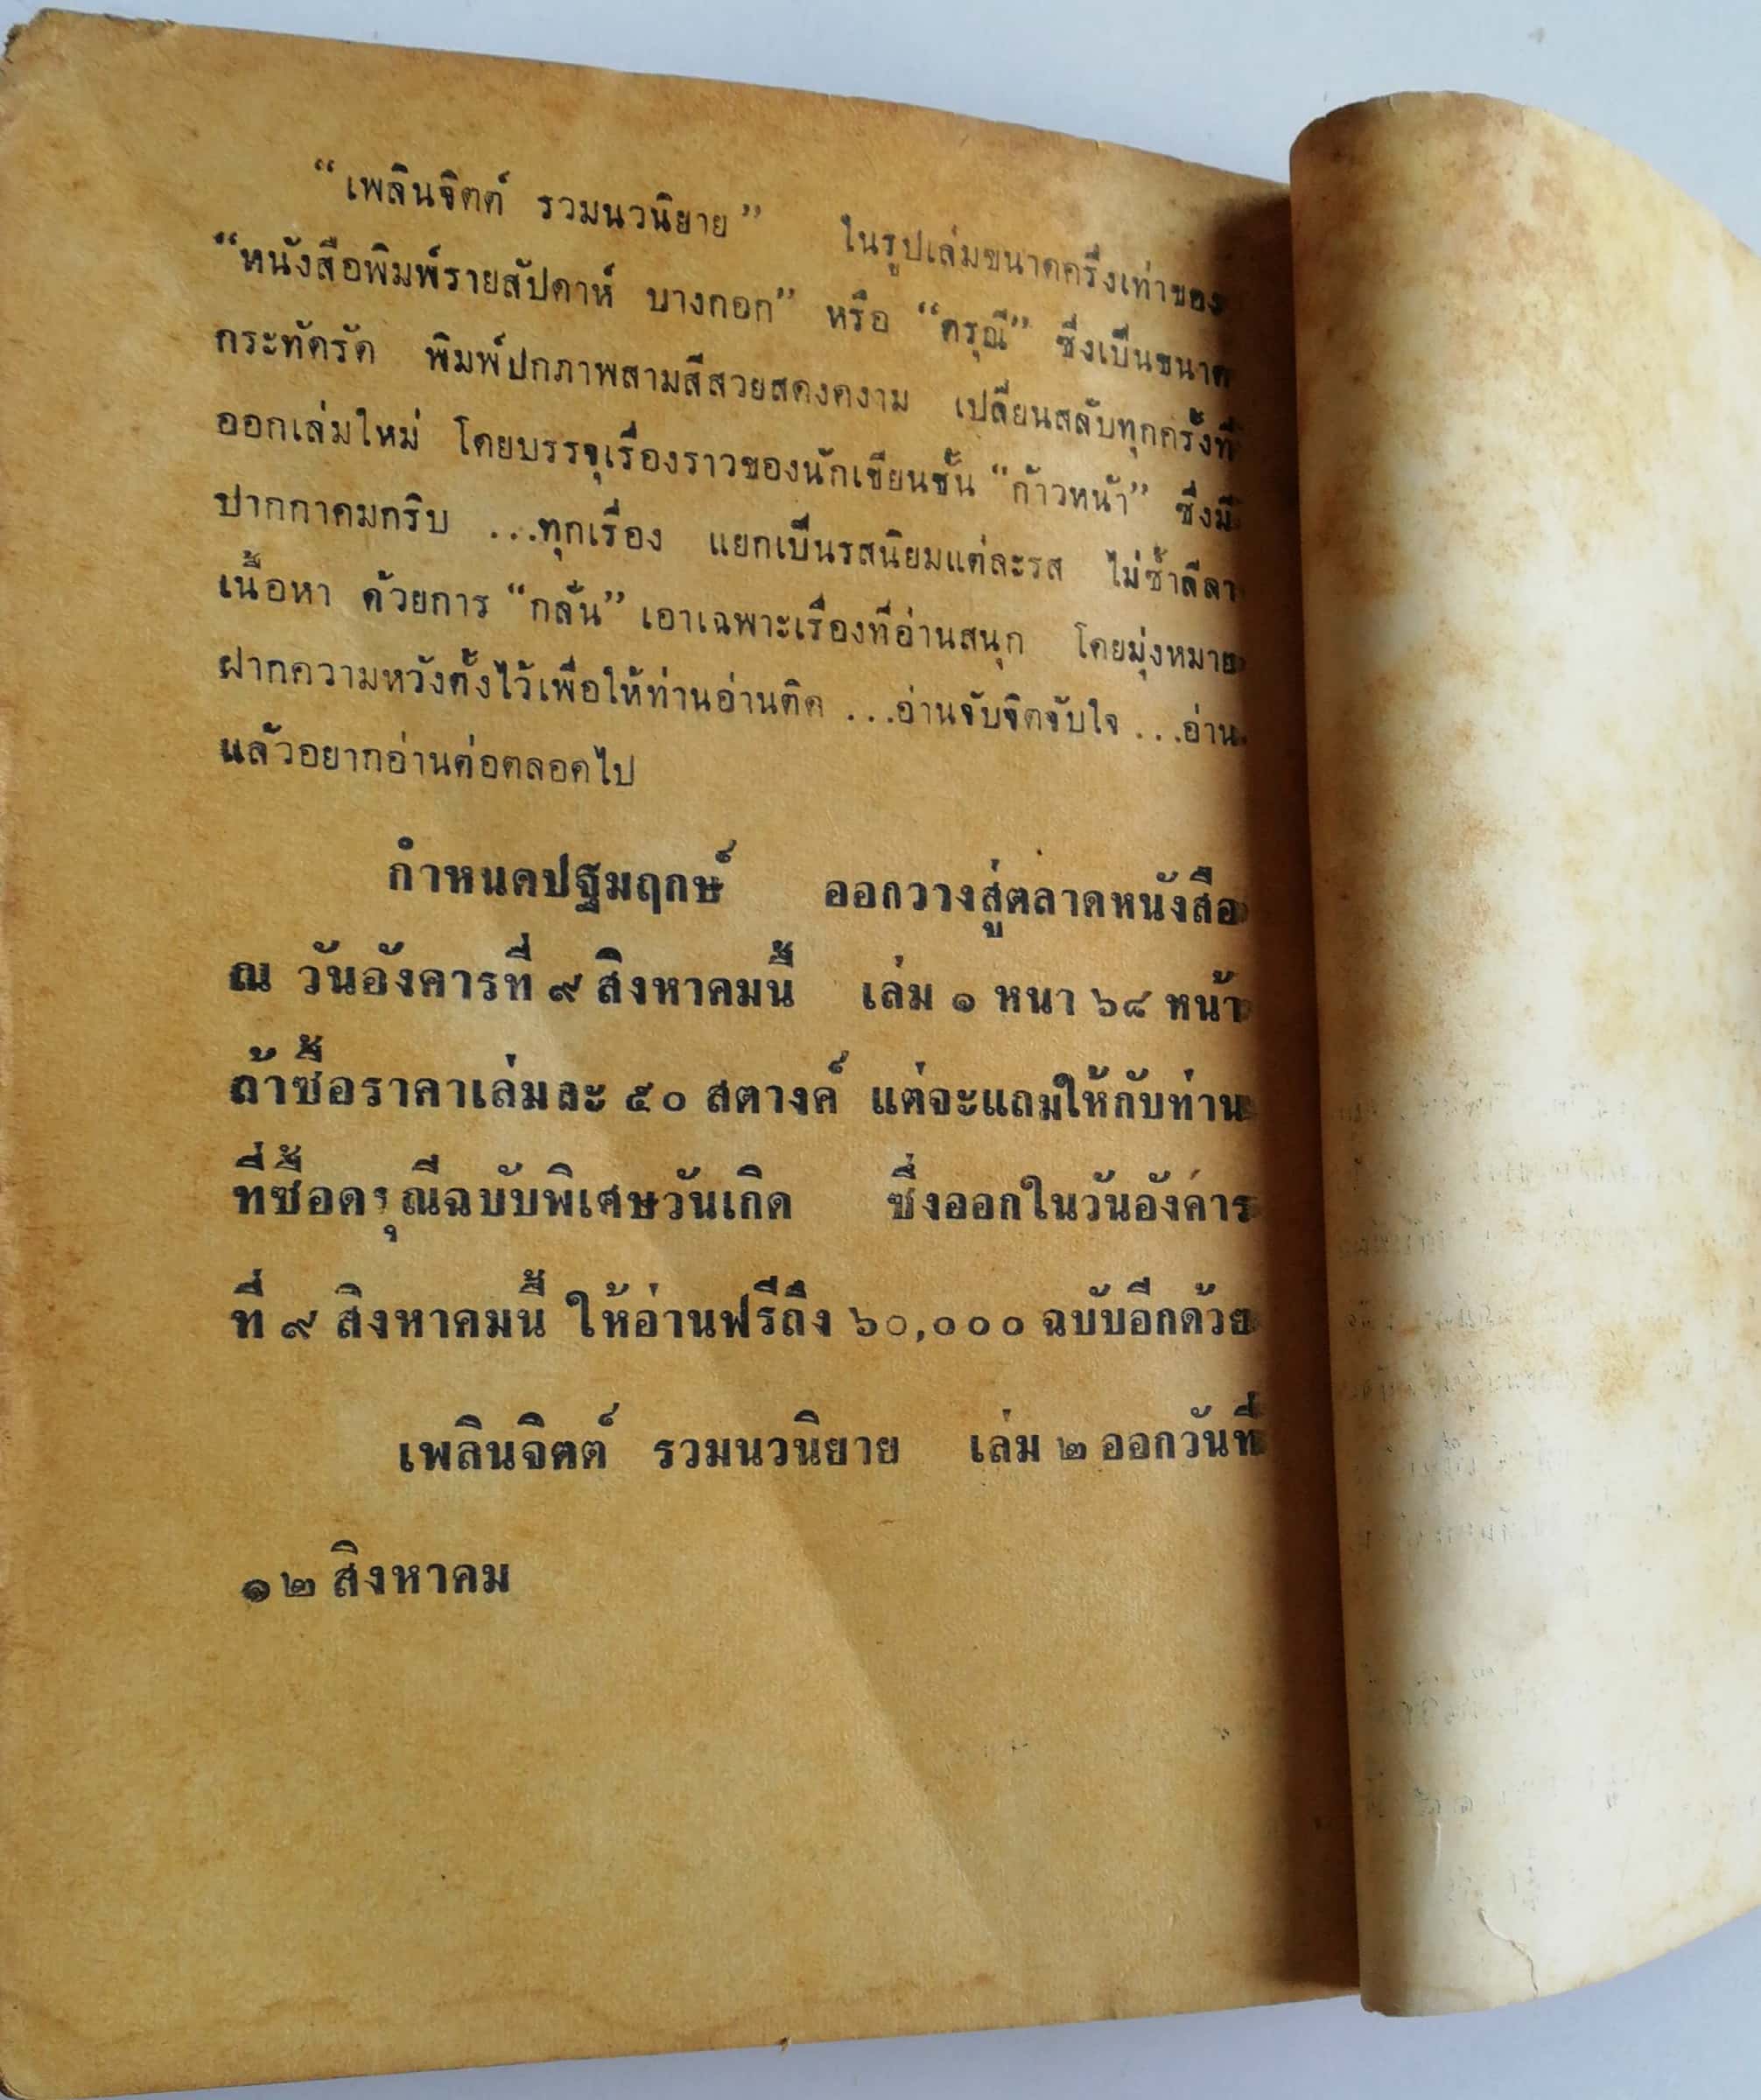 “เพลินจิตต์ รวมนวนิยาย” ในรูปเล่มขนาดครึ่งเท่าของ
“หนังสือพิมพ์รายสัปดาห์ บางกอก” หรือ “ดรุณี” ซึ่งเป็นขนาด
กระทัดรัด พิมพ์ปกภาพสามสีสวยสดงดงาม เปลี่ยนสลับทุกครั้งที่
ออกเล่มใหม่ โดยบรรจุเรื่องราวของนักเขียนชั้น “ก้าวหน้า” ซึ่งมี
ปากกาคมกริบ ...ทุกเรื่อง แยกเป็นรสนิยมแต่ละรส ไม่ซ้ำลีลา
เนื้อหา ด้วยการ “กลั่น” เอาเฉพาะเรื่องที่อ่านสนุก โดยมุ่งหมาย
ฝากความหวังตั้งไว้เพื่อให้ท่านอ่านติด ...อ่านจับจิตจับใจ ...อ่าน
แล้วอยากอ่านต่อตลอดไป
กำหนดปฐมฤกษ์ ออกวางสู่ตลาดหนังสือ
ณ วันอังคารที่ ๙ สิงหาคมนี้ เล่ม ๑ หนา ๖๘ หน้า
ถ้าซื้อราคาเล่มละ ๕๐ สตางค์ แต่จะแถมให้กับท่าน
ที่ซื้อดรุณีฉบับพิเศษวันเกิด ซึ่งออกในวันอังคาร
ที่ ๙ สิงหาคมนี้ ให้อ่านฟรีถึง ๖๐,๐๐๐ ฉบับอีกด้วย
เพลินจิตต์ รวมนวนิยาย เล่ม ๒ ออกวันที่
๑๒ สิงหาคม